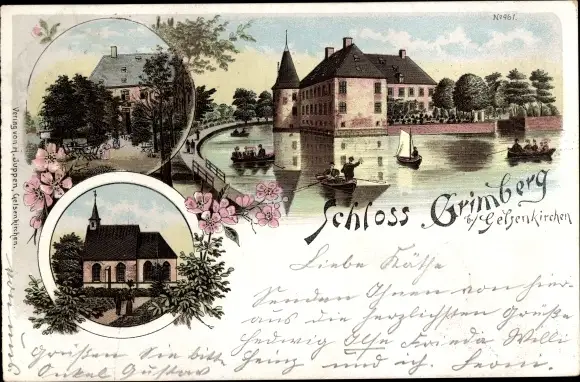 No 461.
Verlag von H. Düppen, Gelsenkirchen.
Schloss Grimberg
b/ Gelsenkirchen
Liebe Käthe
Senden Ihnen von hier
aus die herzlichsten Grüße
Hedwig Else Frieda Willi
Heinz und ich. Leoni.
Grüßen Sie bitte
Onkel Gustav